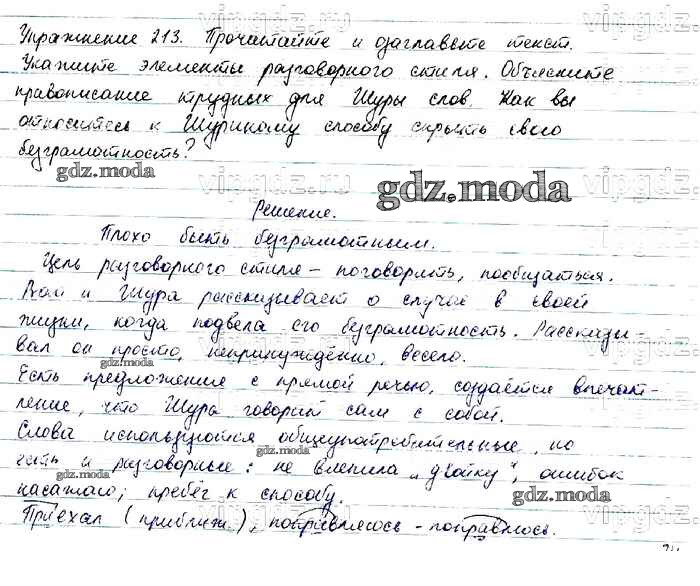 Упражнение 213. Прочитайте и озаглавьте текст.
Укажите элементы разговорного стиля. Объясните
правописание трудных для Шуры слов. Как вы
относитесь к Шуриному способу скрыть свою
безграмотность?
gdz.moda
gdz.moda
Решение.
Плохо быть безграмотным.
Цель разговорного стиля - поговорить, пообщаться.
Вот и Шура рассказывает о случае в своей
жизни, когда подвела его безграмотность. Рассказы-
вал он просто, непринуждённо, весело.
gdz.moda
Есть предложение с прямой речью, создаётся впечат-
ление, что Шура говорит сам с собой.
Слова используются общеупотребительные, но
gdz.moda
есть и разговорные: не влепила "двойку", ошибок
gdz.moda
насажаю; прибег к способу.
gdz.moda
Приехал (приближ.), поправляюсь - поправлюсь.